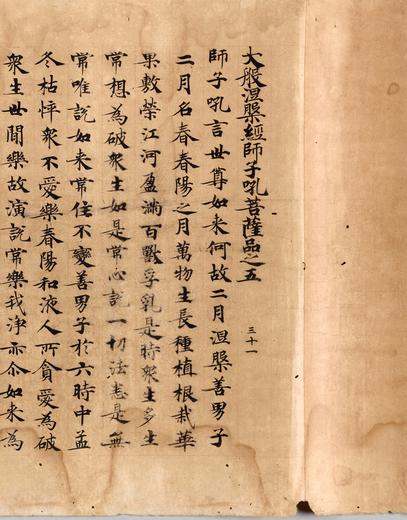 大般涅槃經師子吼菩薩品之五
三十一
師子吼言世尊如來何故二月涅槃善男子
二月名春春陽之月萬物生長種植根栽華
果敷榮江河盈滿百獸孚乳是時衆生多生
常想為破衆生如是常心說一切法悉是無
常唯說如來常住不變善男子於六時中孟
冬枯悴衆不愛樂春陽和液人所貪愛為破
衆生世閒樂故演說常樂我淨亦尒如來為